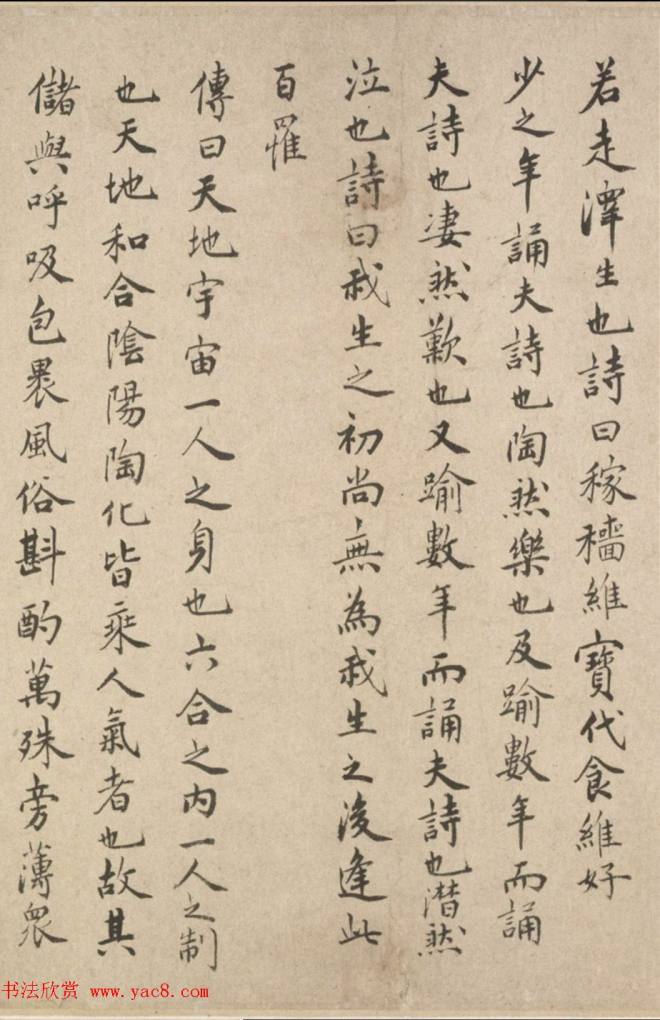 若走澤生也詩曰稼穡維寶代食維好
少之年誦夫詩也陶然樂也及踰數年而誦
夫詩也凄然歎也又踰數年而誦夫詩也潸然
泣也詩曰我生之初尚無為我生之後逢此
百罹
傳曰天地宇宙一人之身也六合之内一人之制
也天地和合陰陽陶化皆乘人氣者也故其
儲與呼吸包褁風俗斟酌萬殊旁薄衆
书法欣赏 www.yac8.com